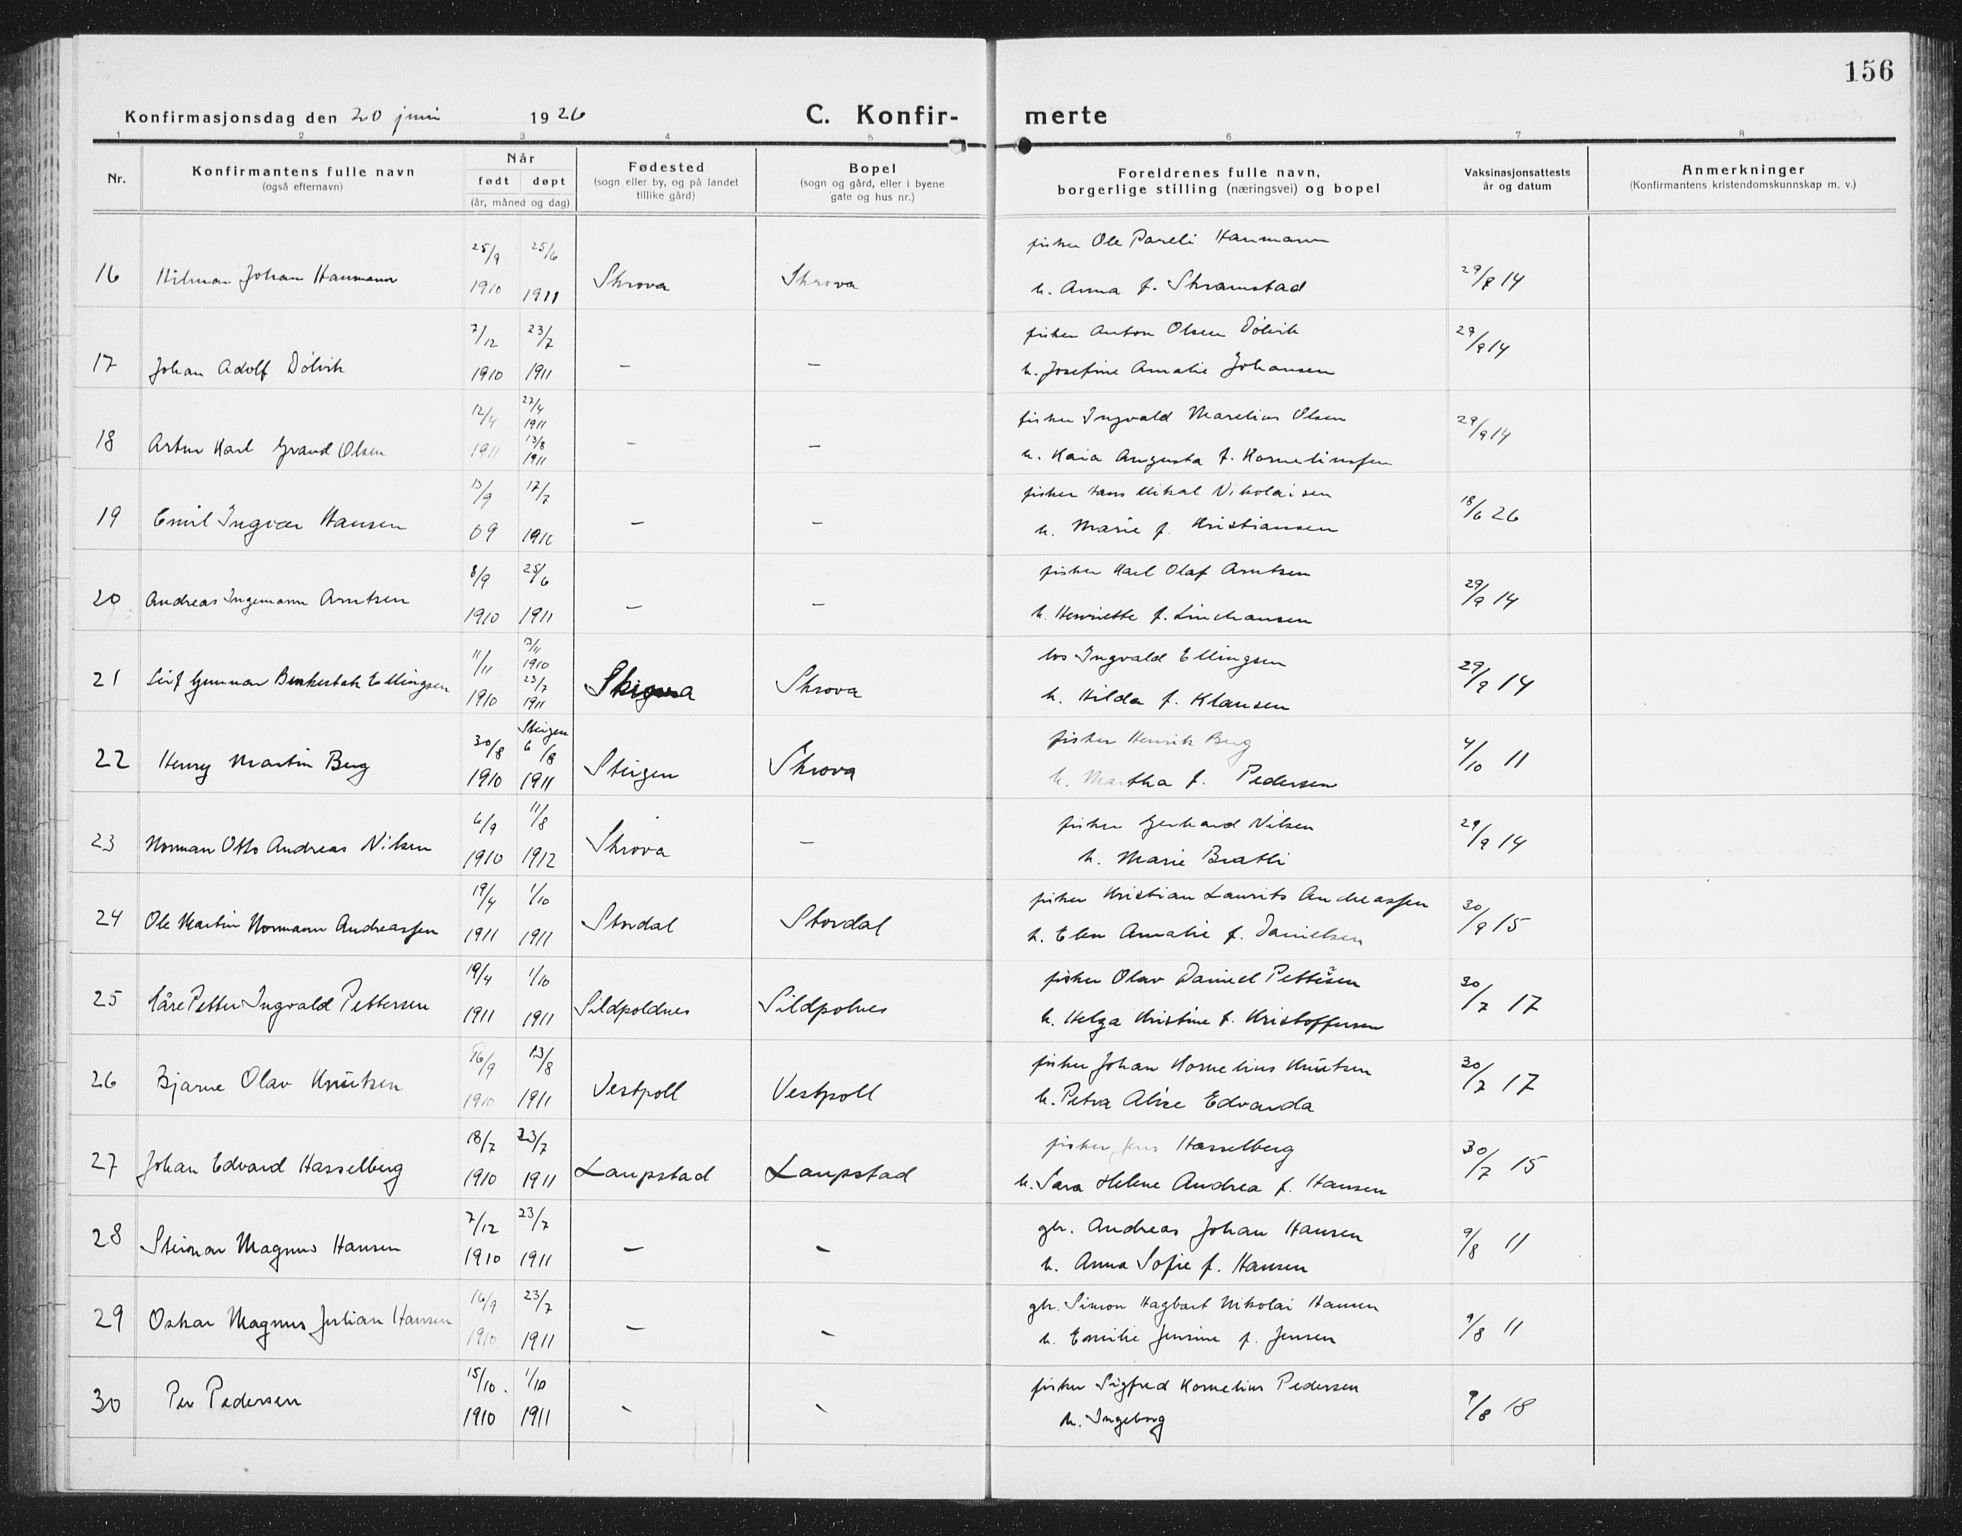 156
Konfirmasjonsdag den 20 juni 1926 C. Konfir- merte
1 2 3 4 5 6 7 8
Nr. Konfirmantens fulle navn (også efternavn) Når født døpt (år, måned og dag) Fødested (sogn eller by, og på landet tillike gård) Bopel (sogn og gård, eller i byene gate og hus nr.) Foreldrenes fulle navn, borgerlige stilling (næringsvei) og bopel Vaksinasjonsattests år og datum Anmerkninger (Konfirmantens kristendomskunnskap m. v.)
fisker Ole Pareli Haumann
16 Hilmar Johan Haumann 25/9 1910 25/6 1911 Skrova Skrova h. Anna f. Skramstad 29/9 14
fisker Anton Olsen Dölvik
17 Johan Adolf Dölvik 7/12 1910 23/7 1911 – – h. Josefine Amalie Johansen 29/9 14
fisker Ingvald Marelius Olsen
18 Artur Karl Grand Olsen 12/4 1911 27/4 1911 13/8 1911 – – h. Kaia Augusta f. Korneliussen 29/9 14
fisker Hans Mikal Nikolaisen
19 Emil Ingvar Hansen 13/9 09 17/7 1910 – – h. Marie f. Kristiansen 18/6 26
fisker Karl Olaf Arntsen
20 Andreas Ingemann Arntsen 8/9 1910 25/6 1911 – – h. Henriette f. 29/9 14
Ingvald Ellingsen
21 Leif Gunnar Benkestok Ellingsen 11/11 1910 13/11 1910 23/7 1911 Skrova h. Hilda f. Klausen 29/9 14
fisker Henrik Berg
22 Henry Martin Berg 30/8 1910 Steigen 6/8 1911 Steigen Skrova h. Martha f. Pedersen 4/10 11
fisker Gerhard Nilsen
23 Norman Otto Andreas Nilsen 6/9 1910 11/8 1912 Skrova – h. Marie Bratli 29/9 14
fisker Kristian Laurits Andreassen
24 Ole Martin Normann Andreassen 19/4 1911 1/10 1911 Stordal Stordal h. Elen Amalie f. Danielsen 30/9 15
fisker Olav Daniel Pettersen
25 Kåre Petter Ingvald Pettersen 19/4 1911 1/10 1911 Sildpoldnes Sildpolnes h. Helga Kristine f. Kristoffersen 30/7 17
fisker Johan Kornelius Knutsen
26 Bjarne Olav Knutsen 16/9 1910 13/8 1911 Vestpoll Vestpoll h. Petra Alise Edvarda 30/7 17
fisker Jens Hasselberg
27 Johan Edvard Hasselberg 18/7 1910 23/7 1911 Laupstad Laupstad h. Sara Helene Andrea f. Hansen 30/7 15
gbr. Andreas Johan Hansen
28 Steinar Magnus Hansen 7/12 1910 23/7 1911 – – h. Anna Sofie f. Hansen 9/8 11
gbr. Simon Hagbart Nikolai Hansen
29 Oskar Magnus Julian Hansen 16/9 1910 23/7 1911 – – h. Emilie Jensine f. Jensen 9/8 11
fisker Sigfred Kornelius Pedersen
30 Per Pedersen 15/10. 1910 1/10 1911 – – h. Ingeborg 9/8 18